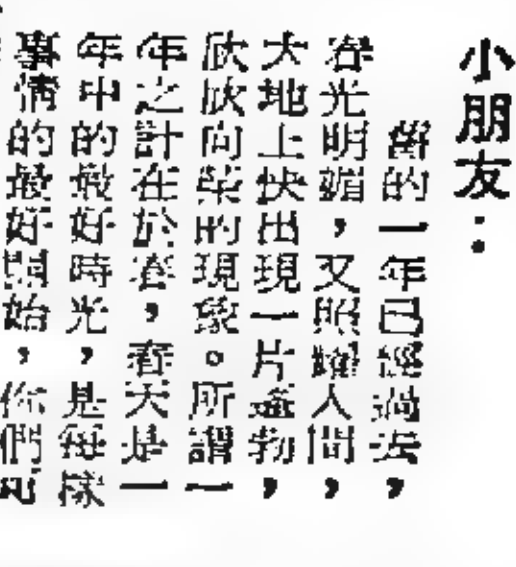 小朋友：
舊的一年已經過去，
春光明媚，又照耀人間，
大地上快出現一片蓬勃，
欣欣向榮的現象。所謂一
年之計在於春，春天是一
年中的最好時光，是每樣
事情的最好開始，你們可